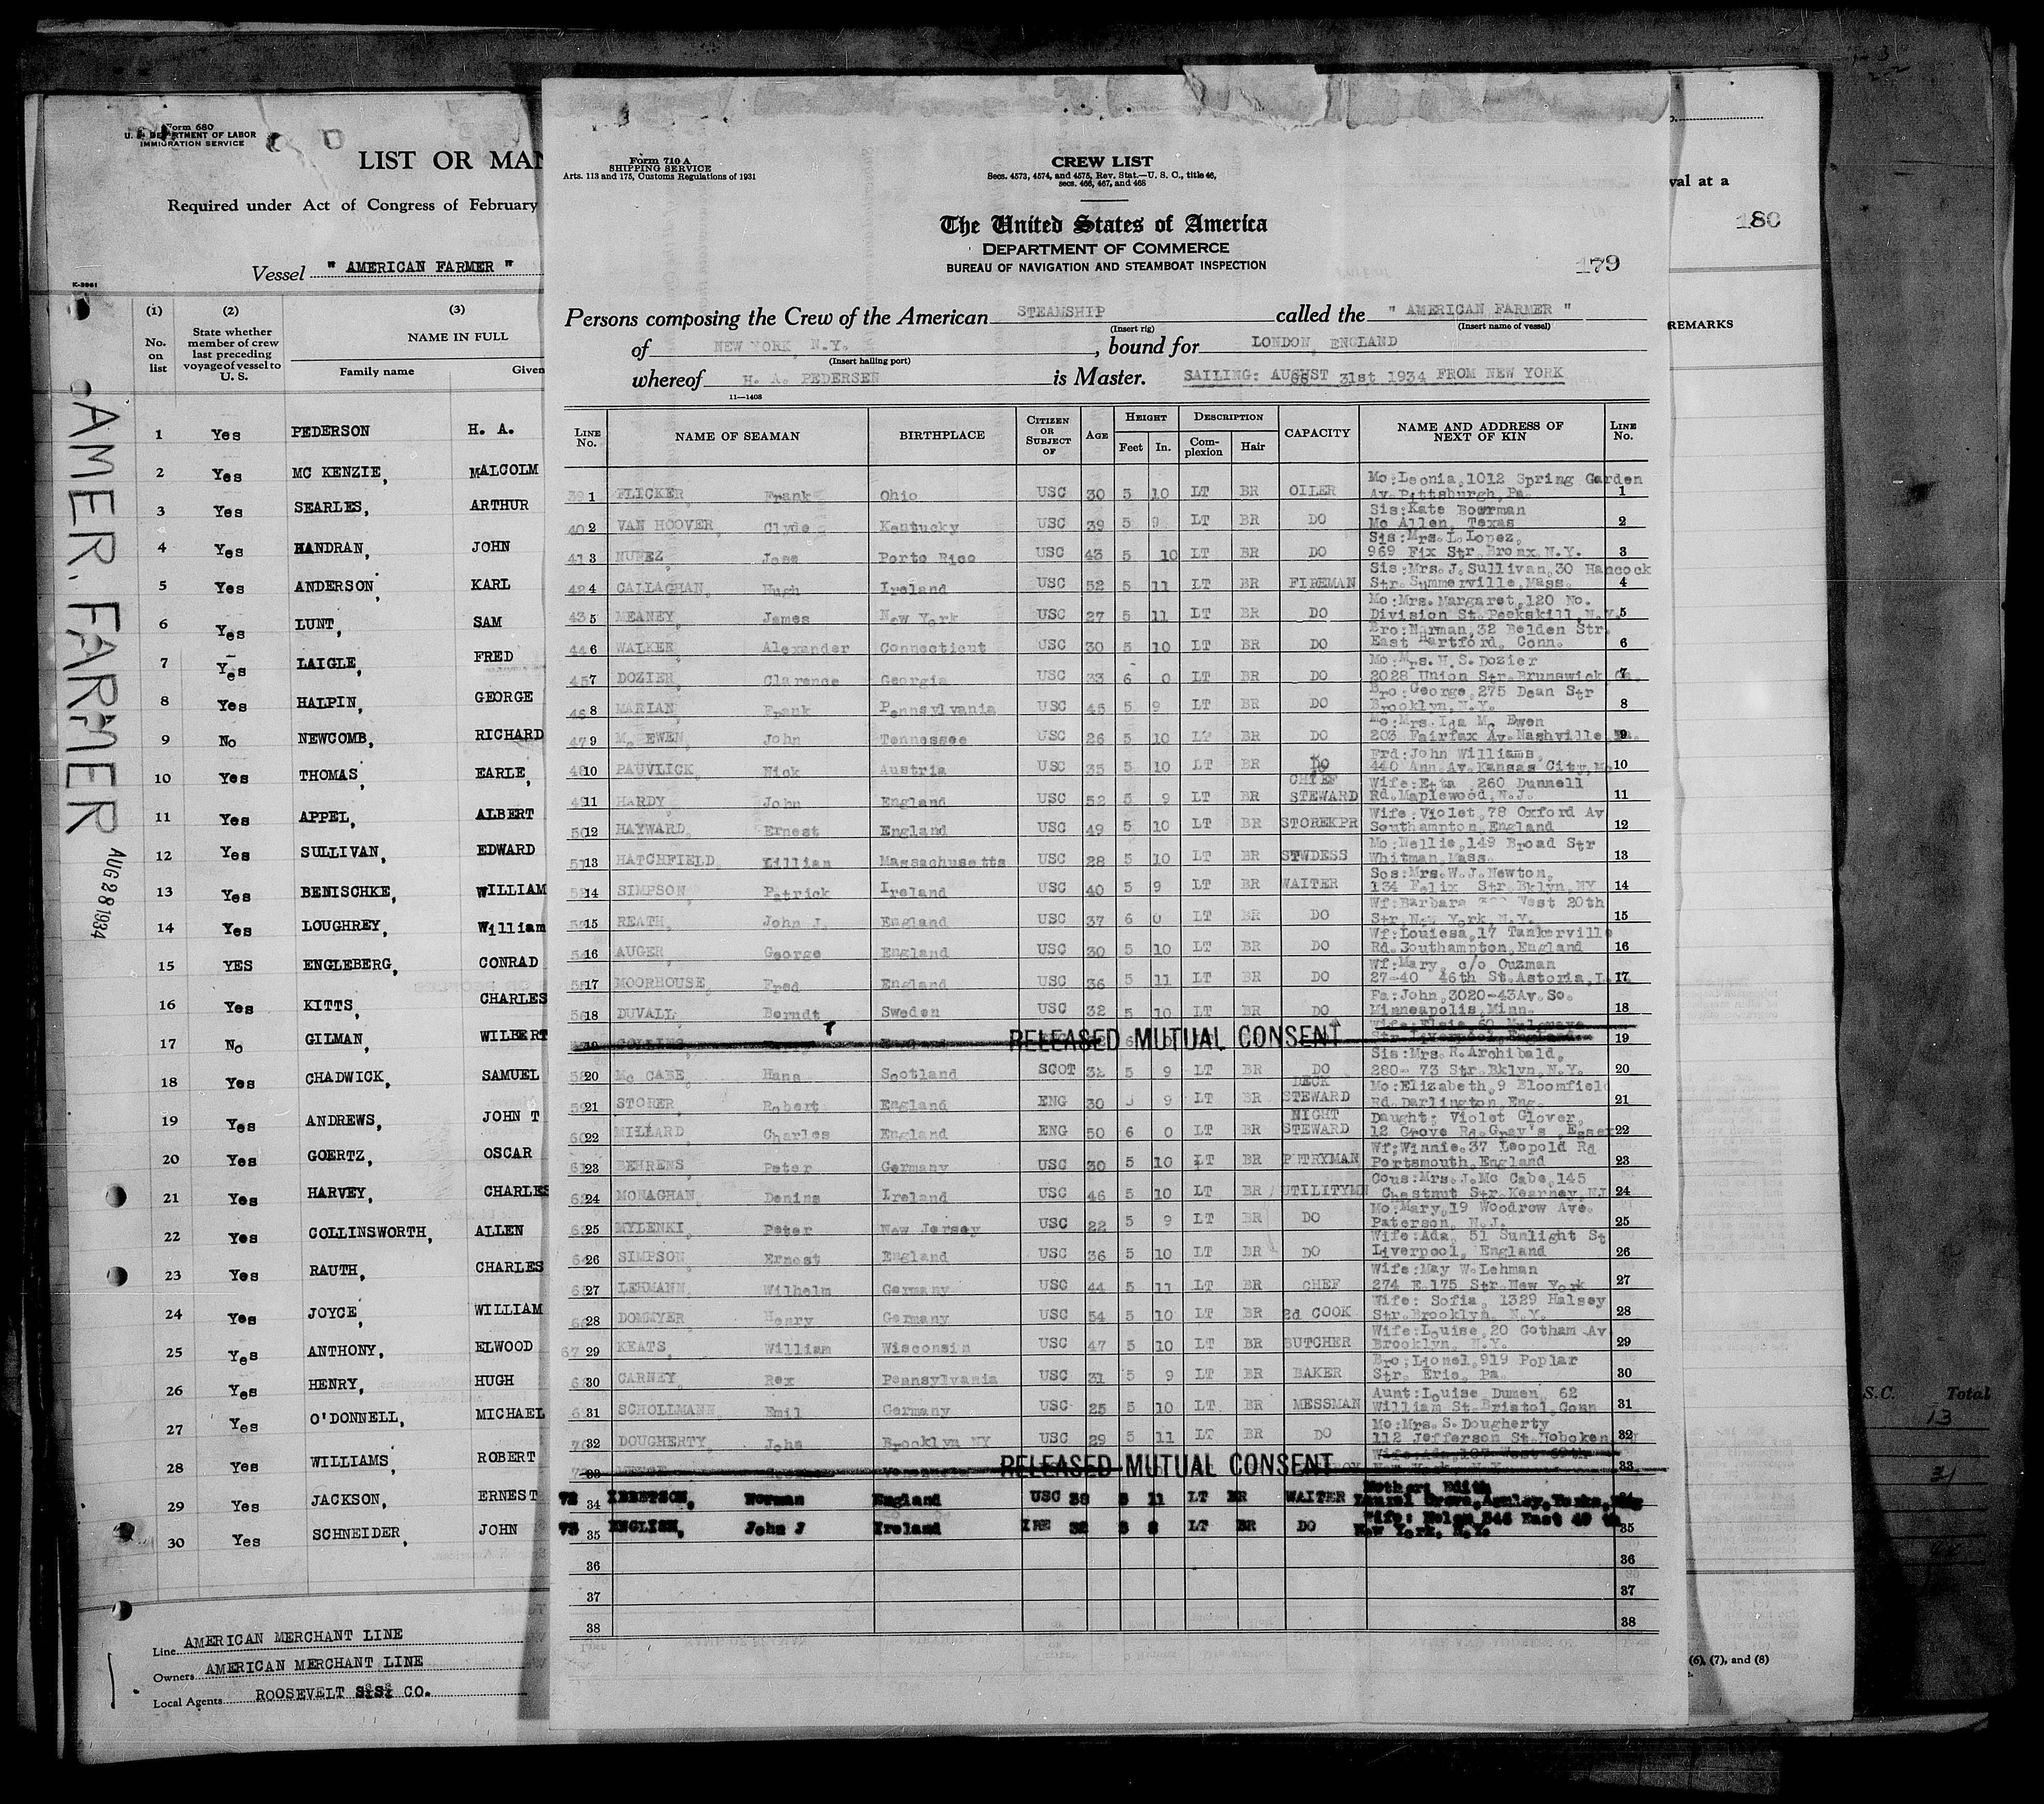 Form 680
U. S. DEPARTMENT OF LABOR
IMMIGRATION SERVICE
LIST OR MAN
Required under Act of Congress of February
Vessel " AMERICAN FARMER "
K-3961
(1) (2) (3)
No. on list
State whether member of crew last preceding voyage of vessel to U. S.
NAME IN FULL
Family name Given
1 Yes PEDERSON H. A.
2 Yes MC KENZIE, MALCOLM
3 Yes SEARLES, ARTHUR
4 Yes HANDRAN, JOHN
5 Yes ANDERSON, KARL
6 Yes LUNT, SAM
7 Yes LAIGLE, FRED
8 Yes HALPIN, GEORGE
9 No NEWCOMB, RICHARD
10 Yes THOMAS, EARLE,
11 Yes APPEL, ALBERT
12 Yes SULLIVAN, EDWARD
13 Yes BENISCHKE, WILLIAM
14 Yes LOUGHREY, William
15 YES ENGLEBERG, CONRAD
16 Yes KITTS, CHARLES
17 No GILMAN, WILBERT
18 Yes CHADWICK, SAMUEL
19 Yes ANDREWS, JOHN T
20 Yes GOERTZ, OSCAR
21 Yes HARVEY, CHARLES
22 Yes COLLINSWORTH, ALLEN
23 Yes RAUTH, CHARLES
24 Yes JOYCE, WILLIAM
25 Yes ANTHONY, ELWOOD
26 Yes HENRY, HUGH
27 Yes O'DONNELL, MICHAEL
28 Yes WILLIAMS, ROBERT
29 Yes JACKSON, ERNEST
30 Yes SCHNEIDER, JOHN
Line AMERICAN MERCHANT LINE
Owners AMERICAN MERCHANT LINE
Local Agents ROOSEVELT S.S. CO.
AMER. FARMER
AUG 28 1934
3
Form 710 A
SHIPPING SERVICE
Arts. 113 and 175, Customs Regulations of 1931
CREW LIST
Secs. 4573, 4574, and 4575, Rev. Stat.—U. S. C., title 46,
secs. 466, 467, and 468
The United States of America
DEPARTMENT OF COMMERCE
BUREAU OF NAVIGATION AND STEAMBOAT INSPECTION
179
Persons composing the Crew of the American STEAMSHIP called the " AMERICAN FARMER "
(Insert rig) (Insert name of vessel)
of NEW YORK, N.Y. , bound for LONDON, ENGLAND
(Insert hailing port)
whereof H. A. PEDERSEN is Master. SAILING: AUGUST 31st 1934 FROM NEW YORK
11—1408
LINE No. NAME OF SEAMAN BIRTHPLACE CITIZEN OR SUBJECT OF AGE HEIGHT Feet In. DESCRIPTION Complexion Hair CAPACITY NAME AND ADDRESS OF NEXT OF KIN LINE No.
39 1 FLICKER, Frank Ohio USC 30 5 10 LT BR OILER Mo:Leonia,1012 Spring Garden Av.Pittsburgh,Pa. 1
40 2 VAN HOOVER, Clyde Kentucky USC 39 5 9 LT BR DO Sis:Kate Bowrman Mc Allen, Texas 2
41 3 NUNEZ, Jose Porto Rico USC 43 5 10 LT BR DO Sis:Mrs.L.Lopez, 969 Fix Str.Bronx N.Y. 3
42 4 CALLAGHAN, Hugh Ireland USC 52 5 11 LT BR FIREMAN Sis:Mrs.J.Sullivan,30 Hancock Str.Summerville,Mass. 4
43 5 MEANEY, James New York USC 27 5 11 LT BR DO Mo:Mrs.Margaret,120 No. Division St.Peekskill,N.Y. 5
44 6 WALKER, Alexander Connecticut USC 30 5 10 LT BR DO Bro:Norman,32 Belden Str. East Hartford, Conn. 6
45 7 DOZIER, Clarence Georgia USC 33 6 0 LT BR DO Mo:Mrs.H.S.Dozier 2028 Union Str.Brunswick, Ga. 7
46 8 MARIAN, Frank Pennsylvania USC 45 5 9 LT BR DO Bro:George,275 Dean Str Brooklyn,N.Y. 8
47 9 Mc EWEN, John Tennessee USC 26 5 10 LT BR DO Mo:Mrs.Ida Mc Ewen 203 Fairfax Av.Nashville 9
48 10 PAUVLICK, Nick Austria USC 35 5 10 LT BR DO Frd:John Williams, 440 Ann.Av.Kansas City,Mo 10
49 11 HARDY, John England USC 52 5 9 LT BR CHIEF STEWARD Wife:Etta, 260 Dunnell Rd.Maplewood,N.J. 11
50 12 HAYWARD, Ernest England USC 49 5 10 LT BR STOREKPR Wife:Violet,78 Oxford Av Southampton,England 12
51 13 HATCHFIELD, Lillian Massachusetts USC 28 5 10 LT BR STWDESS Mo:Nellie,149 Broad Str Whitman,Mass. 13
52 14 SIMPSON, Patrick Ireland USC 40 5 9 LT BR WAITER Sos:Mrs.W.J.Newton, 134 Felix Str.Bklyn,NY 14
53 15 REATH, John J. England USC 37 6 0 LT BR DO Wf:Barbara West 20th Str,New York,N.Y. 15
54 16 AUGER, George England USC 30 5 10 LT BR DO Wf:Louiesa,17 Tankerville Rd.Southampton,England 16
55 17 MOORHOUSE, Fred England USC 36 5 11 LT BR DO Wf:Mary, c/o Cuzman 27-40 46th St.Astoria,L. 17
56 18 DUVALL, Berndt Sweden USC 32 5 10 LT BR DO Fa:John,3020-43Av.So. Minneapolis,Minn. 18
RELEASED MUTUAL CONSENT Wife:Elsie, 60 19
58 20 Mc CABE, Hans Scotland SCOT 32 5 9 LT BR DO Sis:Mrs.R.Archibald, 280- 73 Str.Bklyn,N.Y. 20
59 21 STORER, Robert England ENG 30 9 LT BR DECK STEWARD Mo:Elizabeth,9 Bloomfield Rd.Darlington,Eng. 21
60 22 MILLARD, Charles England ENG 50 6 0 LT BR NIGHT STEWARD Daught: Violet Glover, 12 Grove Rd.Gray's ,Essex 22
61 23 BEHRENS, Peter Germany USC 30 5 10 LT BR PNTRYMAN Wf:Winnie.37 Leopold Rd Portsmouth,England 23
62 24 MONAGHAN, Denins Ireland USC 46 5 10 LT BR UTILITYMN Cous:Mrs.J.Mc Cabe,145 Chestnut Str.Kearney,NJ 24
63 25 MYLENKI, Peter New Jersey USC 22 5 9 LT BR DO Mo:Mary,19 Woodrow Ave. Paterson, N.J. 25
64 26 SIMPSON, Ernest England USC 36 5 10 LT BR DO Wife:Ada, 51 Sunlight St Liverpool, England 26
65 27 LEHMANN, Wilhelm Germany USC 44 5 11 LT BR CHEF Wife:May W.Lehman 274 E.175 Str.New York 27
66 28 DOMMYER, Henry Germany USC 54 5 10 LT BR 2d COOK Wife: Sofia, 1329 Halsey Str.Brooklyn, N.Y. 28
67 29 KEATS, William Wisconsin USC 47 5 10 LT BR BUTCHER Wife:Louise,20 Gotham Av Brooklyn, N.Y. 29
68 30 CARNEY, Rex Pennsylvania USC 31 5 9 LT BR BAKER Bro:Lionel,919 Poplar Str. Erie, Pa. 30
69 31 SCHOLLMANN, Emil Germany USC 25 5 10 LT. BR MESSMAN Aunt:Louise Dumen, 62 William St.Bristol,Conn 31
70 32 DOUGHERTY, John Brooklyn NY USC 29 5 11 LT BR DO Mo:Mrs.S.Dougherty 112 Jefferson St.Hoboken 32
RELEASED MUTUAL CONSENT 33
72 34 IBBETSON, Norman England USC 38 5 11 LT BR WAITER Mother: Edith Laurel Grove, 34
73 35 ENGLISH, John J Ireland IRE 32 5 8 LT BR DO Wife: Helen 346 East 49 th New York, N.Y. 35
36 36
37 37
38 38
val at a
180
REMARKS
(6), (7), and (8)
S.C. Total
13
31